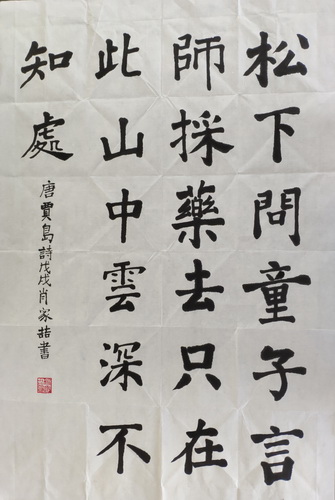 松下問童子言
師採藥去只在
此山中雲深不
知處
唐賈島詩戊戌肖家喆書